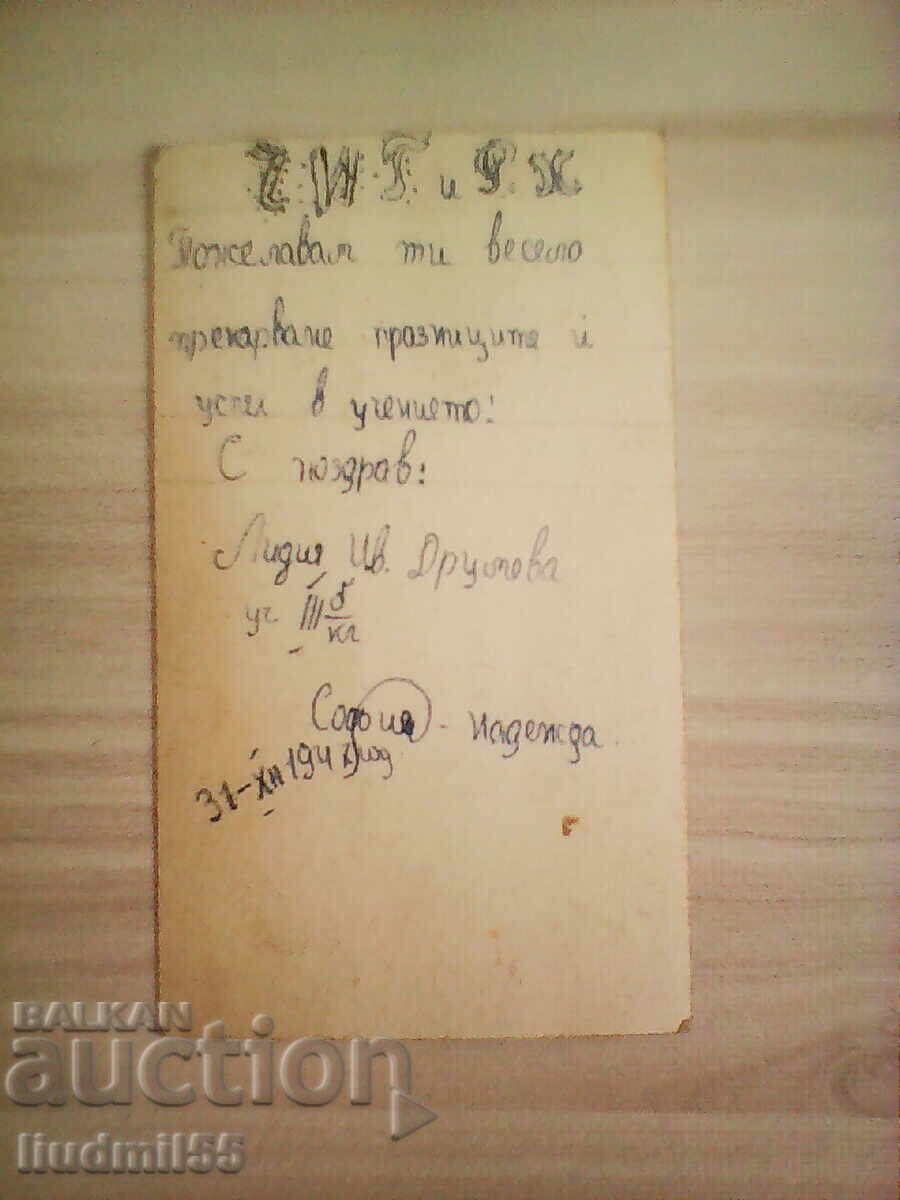 Ч.Н.Г. и Р.Х.
Пожелавам ти весело
прекарване празниците и
успех в учението!
С поздрав:
Лидия Ив. Друмева
уч III б
кл
София - Надежда.
31-XII 194 год
BALKAN
auction
liudmil55